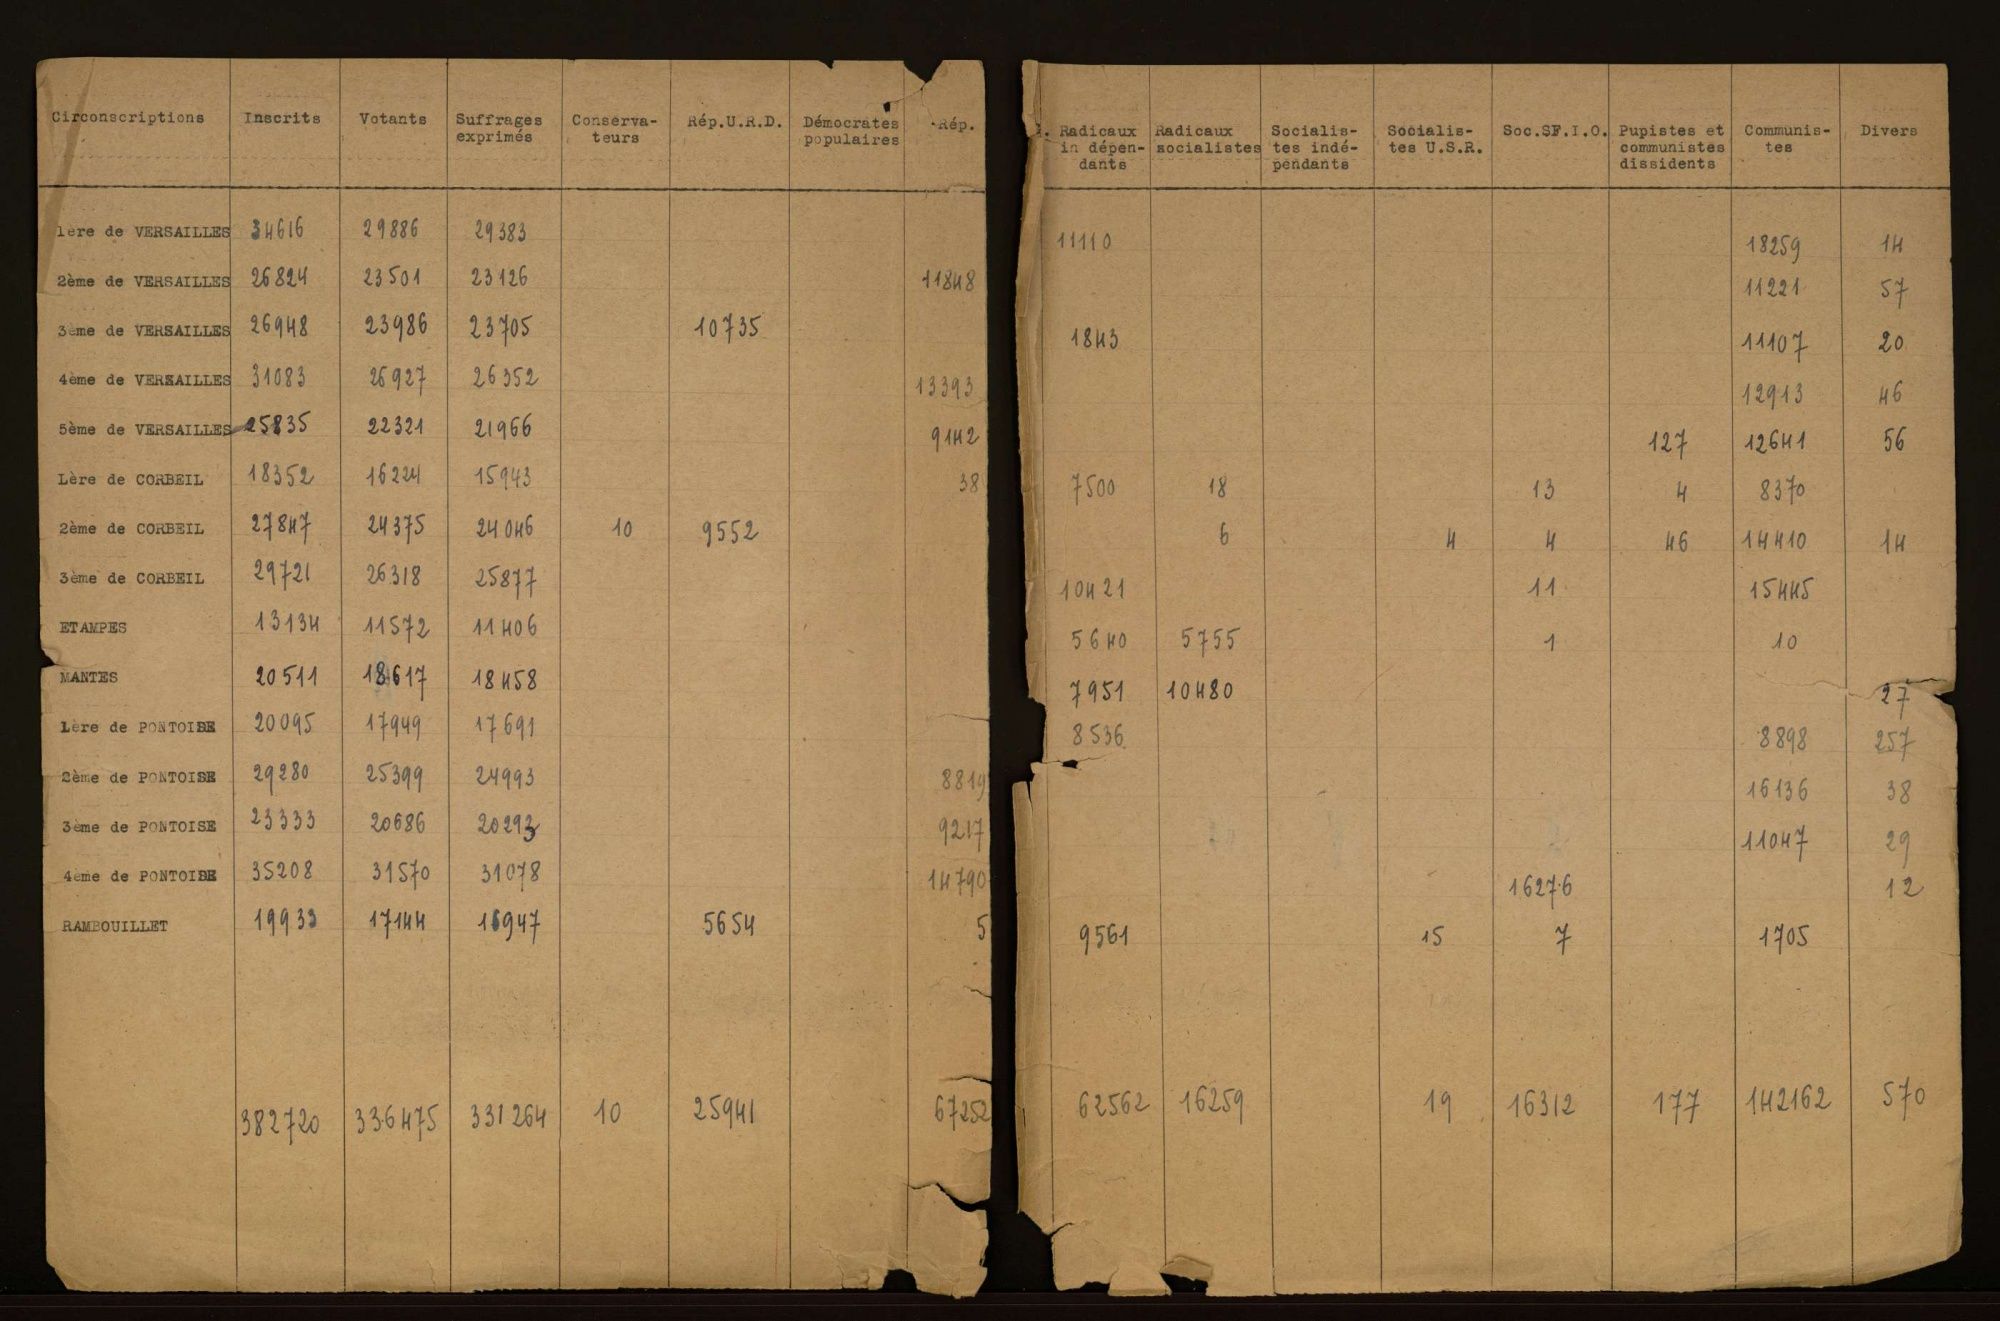 Circonscriptions Inscrits Votants Suffrages exprimés Conserva-teurs Rép.U.R.D. Démocrates populaires Rép. Radicaux in dépen-dants Radicaux socialistes Socialis-tes indé-pendants Socialis-tes U.S.R. Soc.SF.I.O. Pupistes et communistes dissidents Communis-tes Divers
1ère de VERSAILLES 34616 29886 29383 11110 18259 14
2ème de VERSAILLES 26824 23501 23126 11848 11221 57
3ème de VERSAILLES 26948 23986 23705 10735 1843 11107 20
4ème de VERSAILLES 31083 26927 26352 13393 12913 46
5ème de VERSAILLES 25835 22321 21966 9142 127 12641 56
Lère de CORBEIL 18352 16224 15943 38 7500 18 13 4 8370
2ème de CORBEIL 27847 24375 24046 10 9552 6 4 4 46 14410 14
3ème de CORBEIL 29721 26318 25877 10421 11 15445
ETAMPES 13134 11572 11406 5640 5755 1 10
MANTES 20511 18617 18458 7951 10480 27
1ère de PONTOISE 20095 17949 17691 8536 8898 257
2ème de PONTOISE 29280 25399 24993 8819 16136 38
3ème de PONTOISE 23333 20686 20293 9217 11047 29
4ème de PONTOISE 35208 31570 31078 14790 16276 12
RAMBOUILLET 19933 17144 16947 5654 5 9561 15 7 1705
382720 336475 331264 10 25941 67252 62562 16259 19 16312 177 142162 570